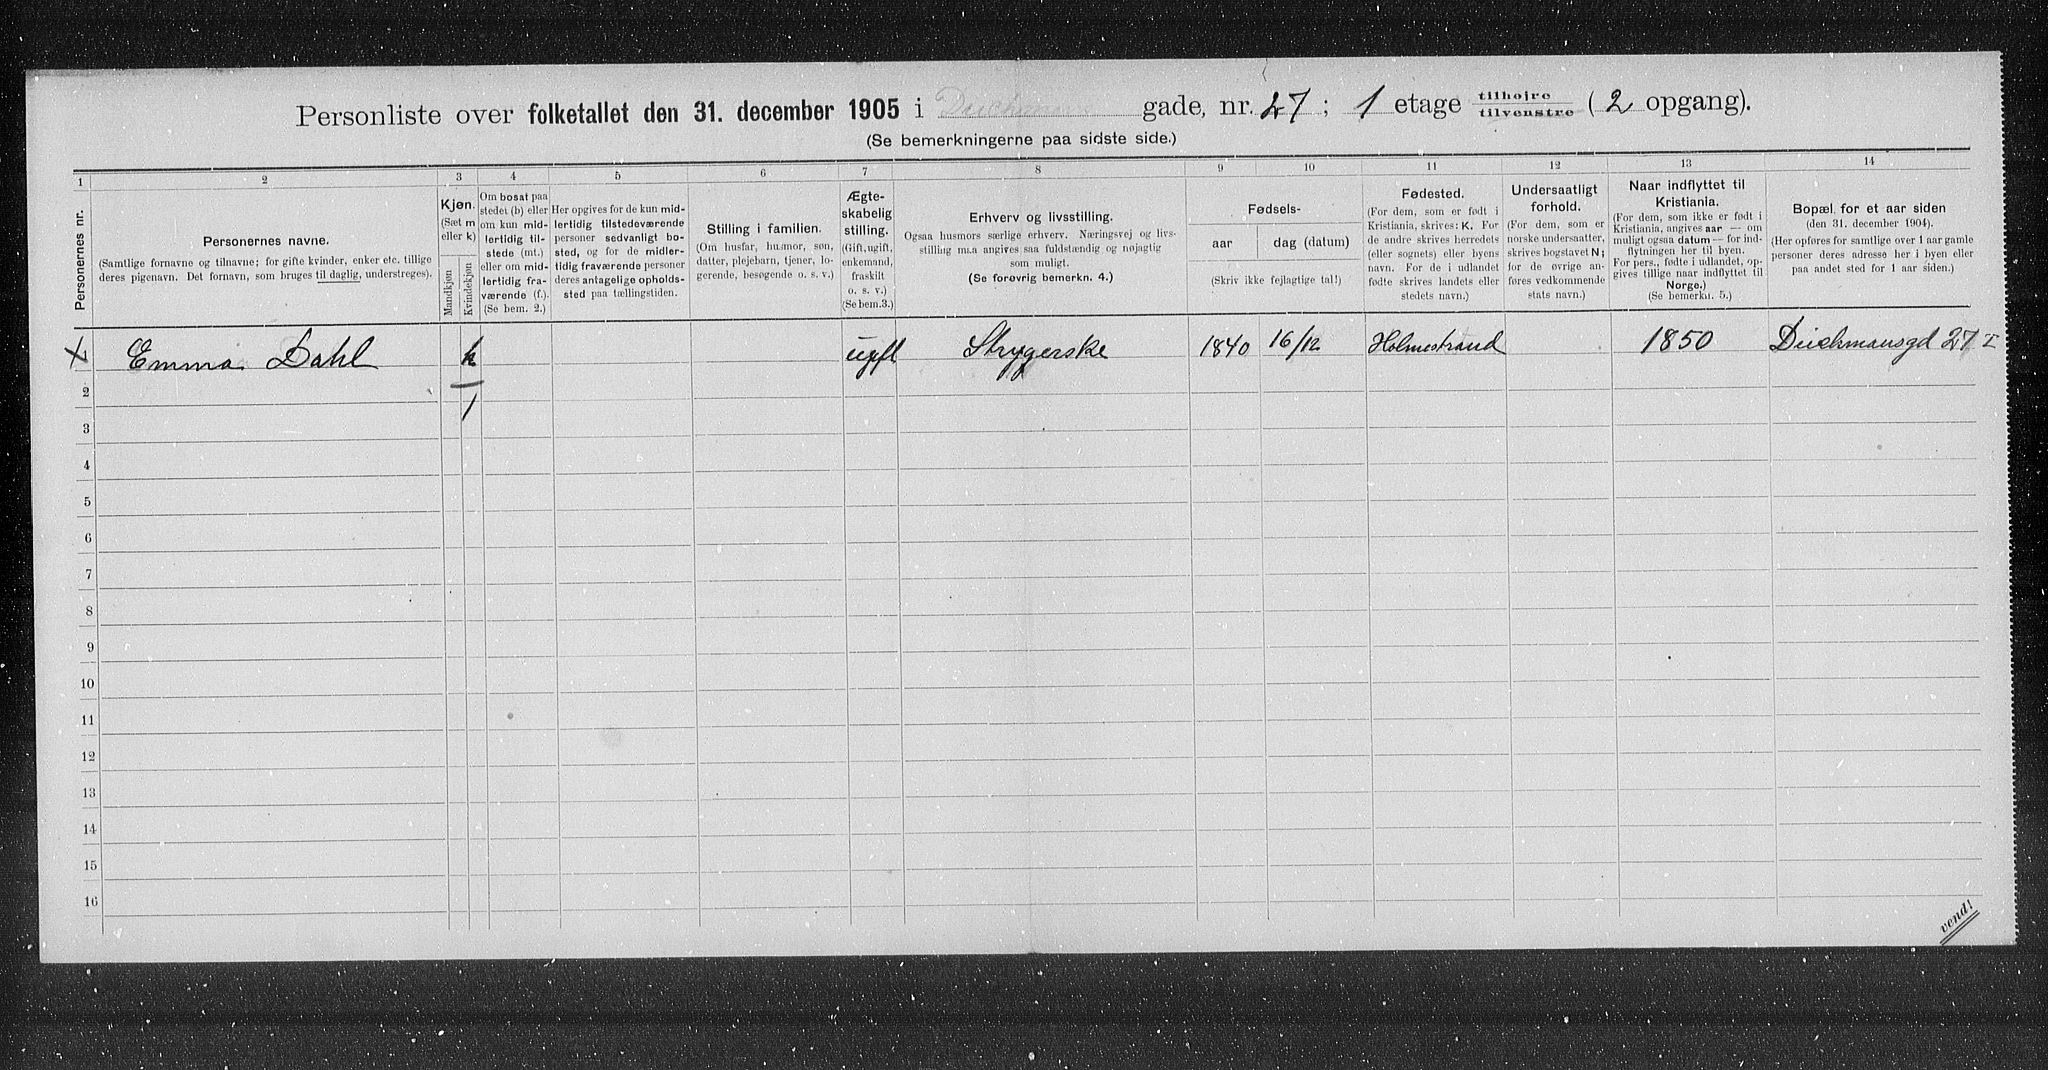 Personliste over folketallet den 31. december 1905 i Deichmans gade, nr. 27 ; 1 etage tilhøjre tilvenstre ( 2 opgang).
(Se bemerkningerne paa sidste side.)
1 2 3 4 5 6 7 8 9 10 11 12 13 14
Personernes nr.
Personernes navne.
(Samtlige fornavne og tilnavne; for gifte kvinder, enker etc. tillige
deres pigenavn. Det fornavn, som bruges til daglig, understreges).
Kjøn.
(Sæt m
eller k)
Mandkjøn
Kvindekjøn
Om bosat paa
stedet (b) eller
om kun mid-
lertidig til-
stede (mt.)
eller om mid-
lertidig fra-
værende (f.)
(Se bem. 2.)
Her opgives for de kun mid-
lertidig tilstedeværende
personer sedvanligt bo-
sted, og for de midler-
tidig fraværende personer
deres antagelige opholds-
sted paa tællingstiden.
Stilling i familien.
(Om husfar, husmor, søn,
datter, plejebarn, tjener, lo-
gerende, besøgende o. s. v.)
Ægte-
skabelig
stilling.
(Gift, ugift,
enkemand,
fraskilt
o. s. v.)
(Se bem.3.)
Erhverv og livsstilling.
Ogsaa husmors særlige erhverv. Næringsvej og livs-
stilling m.a angives saa fuldstændig og nøjagtig
som muligt.
(Se forøvrig bemerkn. 4.)
Fødsels-
aar dag (datum)
(Skriv ikke fejlagtige tal!)
Fødested.
(For dem, som er født i
Kristiania, skrives: K. For
de andre skrives herredets
(eller sognets) eller byens
navn. For de i udlandet
fødte skrives landets eller
stedets navn.)
Undersaatligt
forhold.
(For dem, som er
norske undersaatter,
skrives bogstavet N;
for de øvrige an-
føres vedkommende
stats navn.)
Naar indflyttet til
Kristiania.
(For dem, som ikke er født i
Kristiania, angives aar — om
muligt ogsaa datum — for ind-
flytningen her til byen.
For pers., fødte i udlandet, op-
gives tillige naar indflyttet til
Norge.)
(Se bemerkn. 5.)
Bopæl for et aar siden
(den 31. december 1904).
(Her opføres for samtlige over 1 aar gamle
personer deres adresse her i byen eller
paa andet sted for 1 aar siden.)
1 Emma Dahl k ugft Strygerske 1840 16/12 Holmestrand 1850 Deichmansgd 27 I
2
1
3
4
5
6
7
8
9
10
11
12
13
14
15
16
vend!